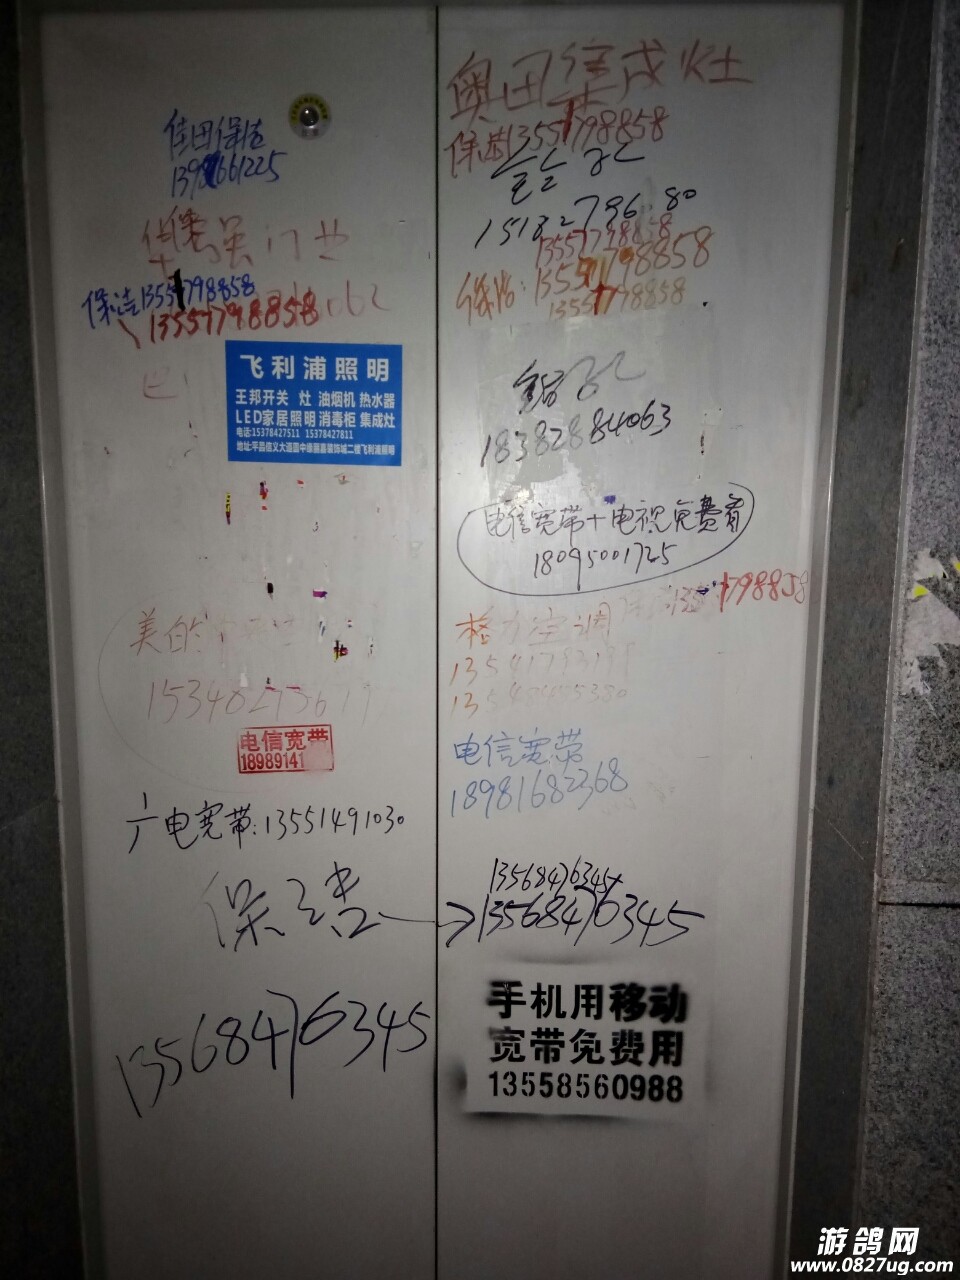 奥田集成灶
佳田保洁
保洁13551798858
15182796680
13551798858
保洁:13551798858
13551798858
门业
保洁13551798858
13551798858
飞利浦照明
王邦开关 灶 油烟机 热水器
LED家居照明 消毒柜 集成灶
电话:15378427511 15378427811
18382884063
电信宽带+电视免费看
18095001725
798858
美的
格力空调
电信宽带
18989141
电信宽带
18981682368
广电宽带:13551491030
13568476345
保洁→13568476345
13568476345
手机用移动
宽带免费用
13558560988
游鸽网
www.0827ug.com